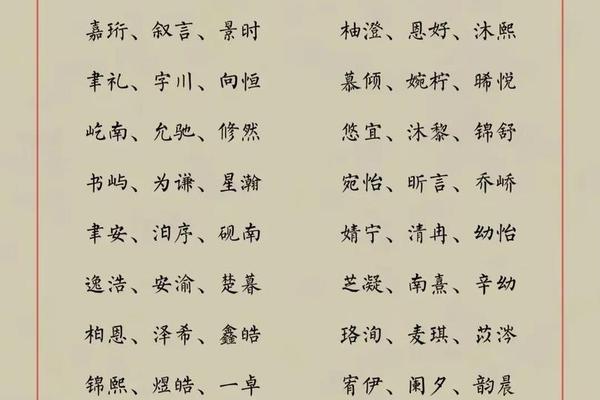 嘉珩、叙言、景时 柚澄、恩好、沐熙
聿礼、字川、向恒 慕倾、婉柠、晞悦
屹南、允驰、修然 悠宜、沐黎、锦舒
书屿、为谦、星瀚 宛怡、昕言、乔峤
聿安、泊序、砚南 婧宁、清冉、幼怡
逸浩、安渝、楚暮 芝凝、南熹、辛幼
柏恩、泽希、鑫皓 珞洵、麦琪、苡涔
锦熙、煜皓、一卓 宥伊、阑夕、韵晨